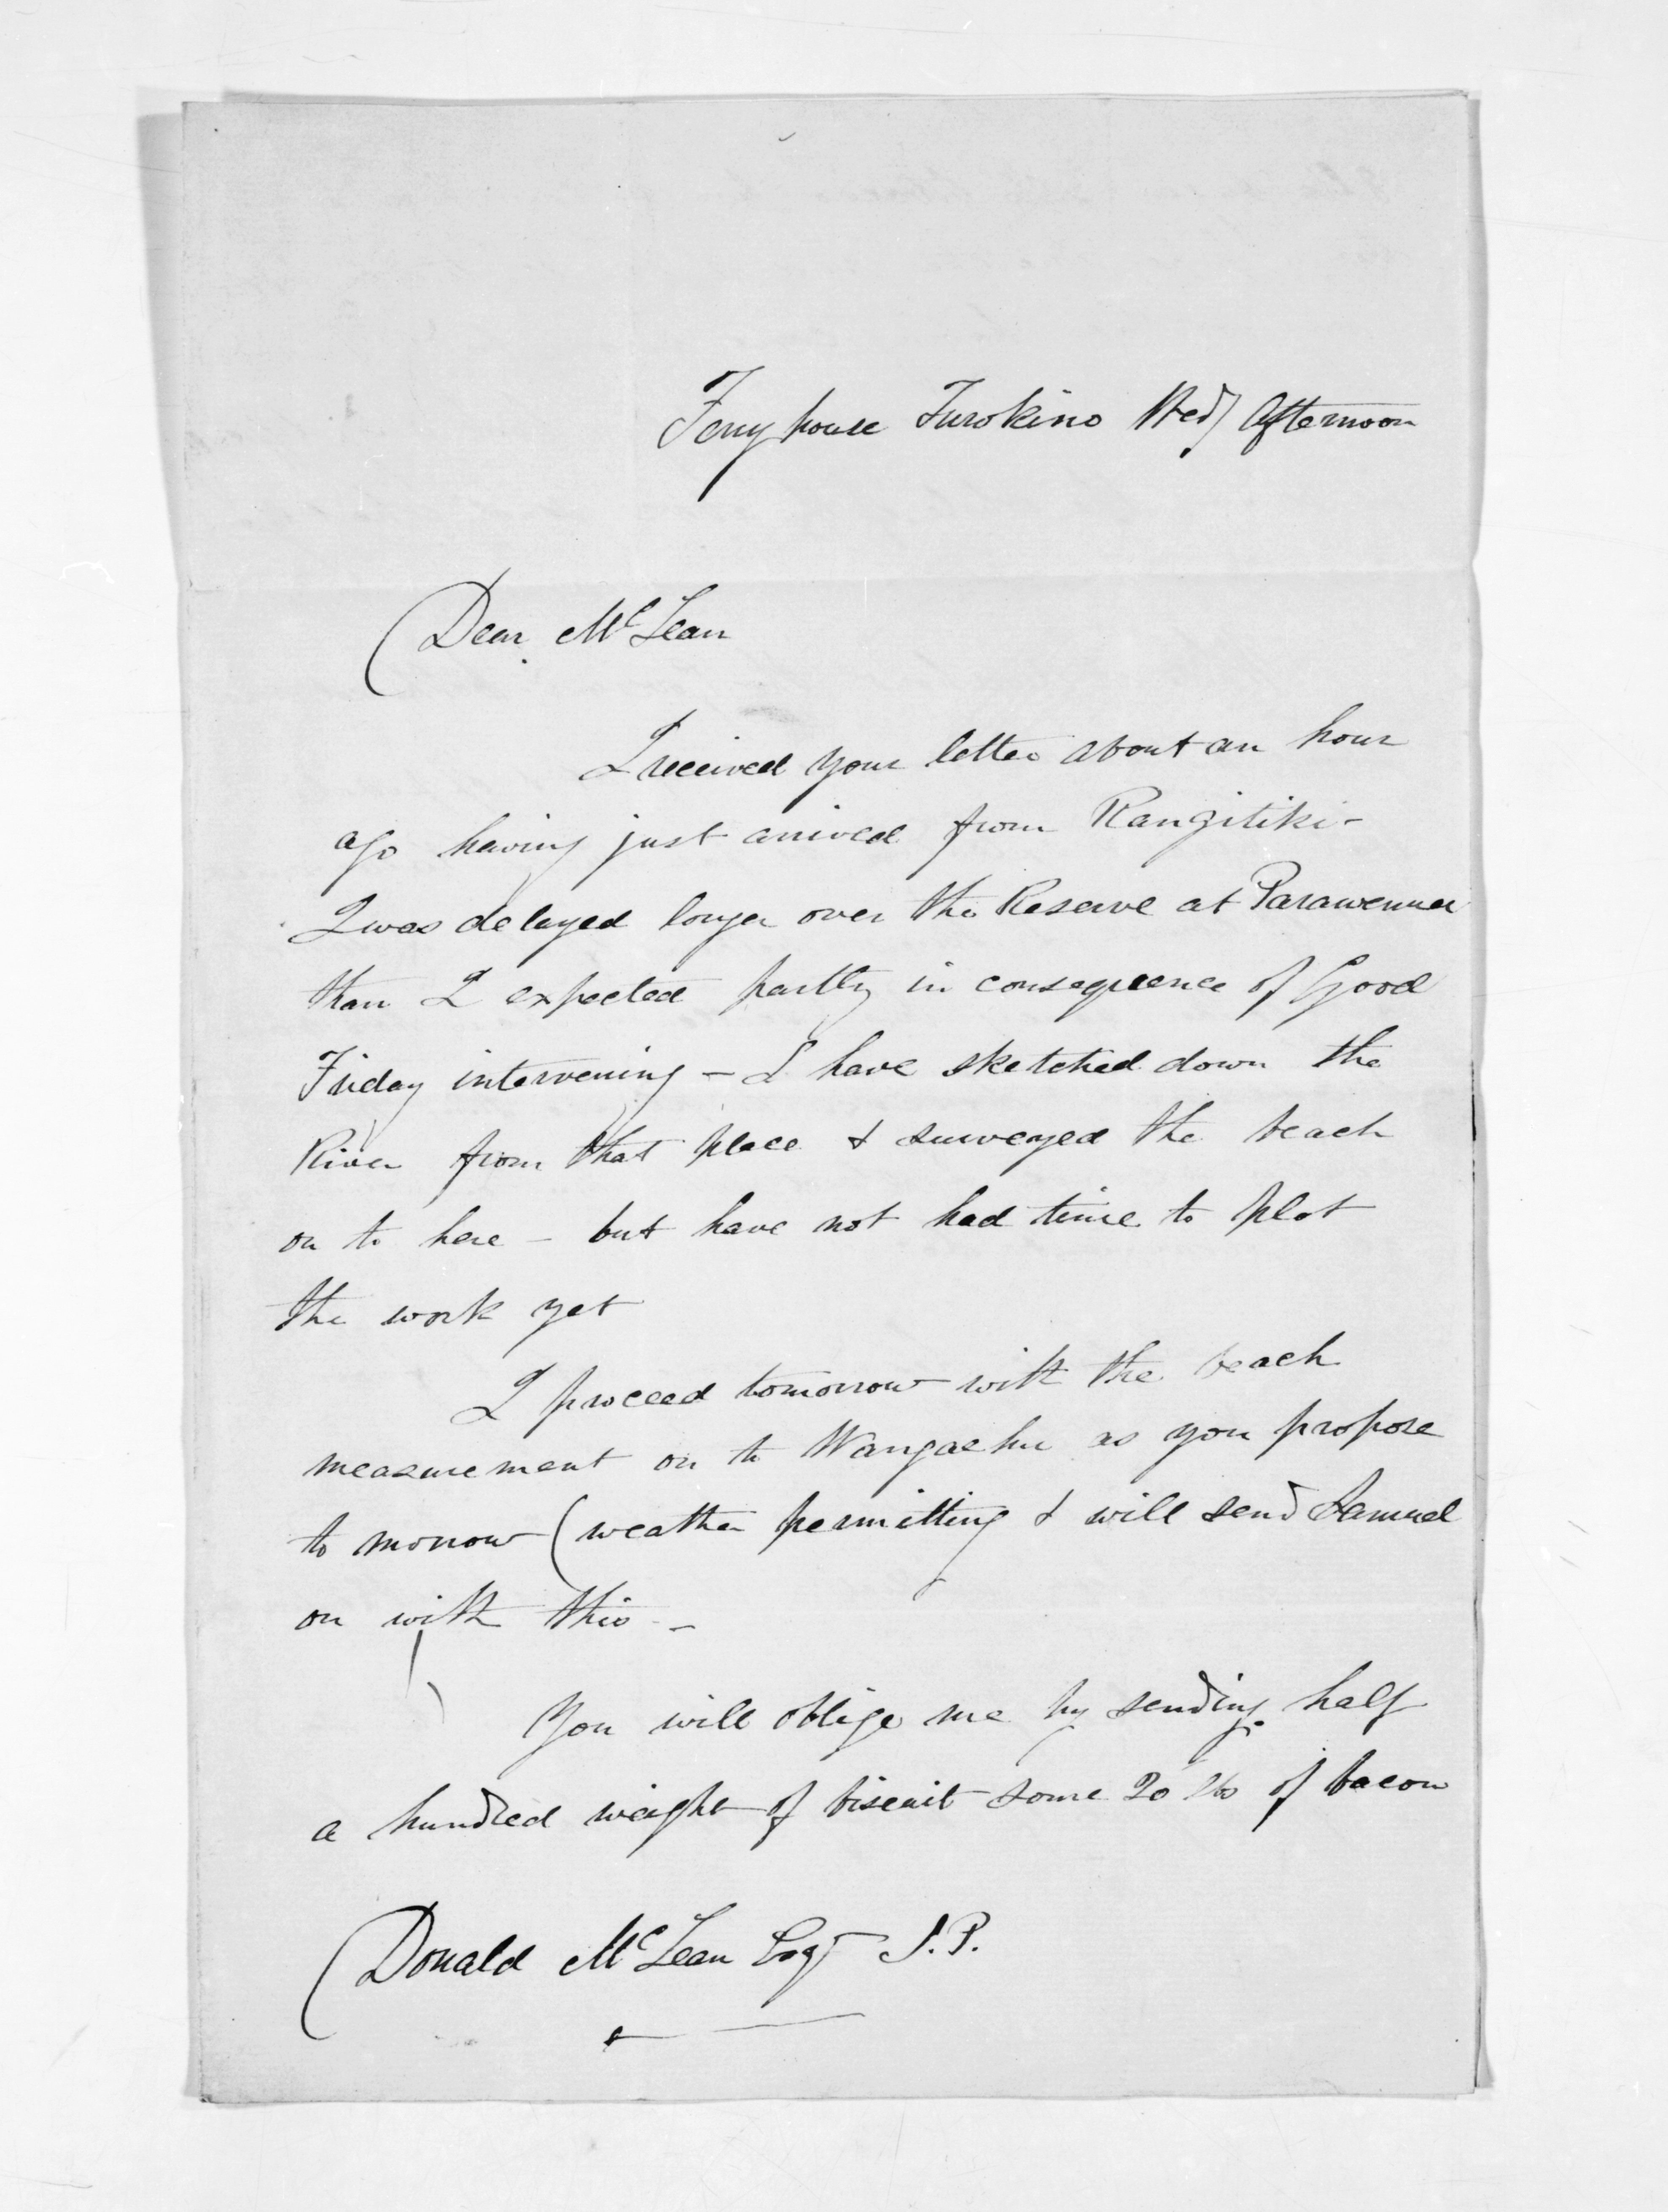 Ferry house Turokino Wedy Afternoon
Dear McLean
I received your letter about an hour
ago having just arrived from Rangitiki -
I was delayed longer over the Reserve at Parawenua
than I expected partly in consequence of Good
Friday intervening - I have sketched down the
River from that place & surveyed the beach
on to here - but have not had time to plot
the work yet
I proceed tomorrow with the beach
measurement on to Wangaehu as you propose
to morrow (weather permitting & will send Samuel
on with this -
You will oblige me by sending half
a hundred weight of biscuit some 20 lbs of bacon
Donald McLean Esqr J.P.